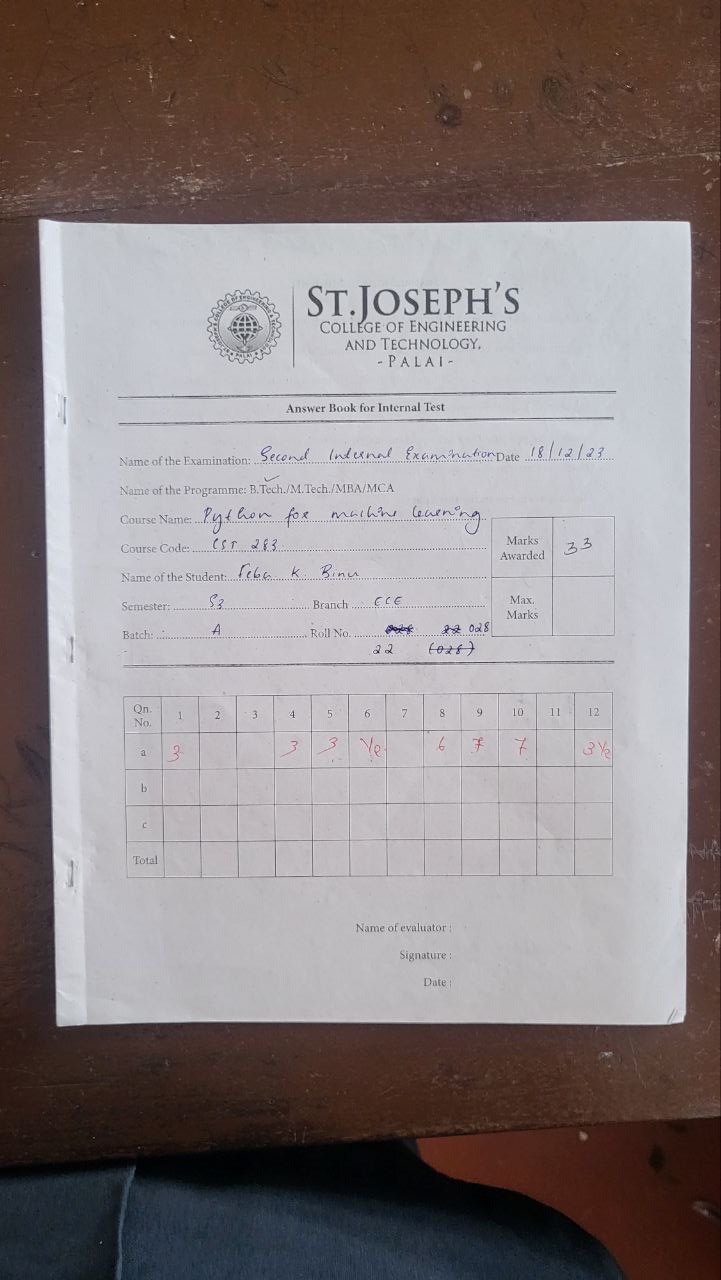 ST.JOSEPH'S
COLLEGE OF ENGINEERING
AND TECHNOLOGY,
- PALAI -
Answer Book for Internal Test
Name of the Examination: Second Internal Examination Date 18/12/23
Name of the Programme: B.Tech./M.Tech./MBA/MCA
Course Name: Python for machine learning
Course Code: CST 283
Marks Awarded 33
Name of the Student: K. Binu
Semester: S3 Branch ECE
Max. Marks
Batch: A Roll No. 028
22 (028)
Qn. No. 1 2 3 4 5 6 7 8 9 10 11 12
a 3 3 3 1/2 6 7 7 3 1/2
b
c
Total
Name of evaluator :
Signature :
Date :